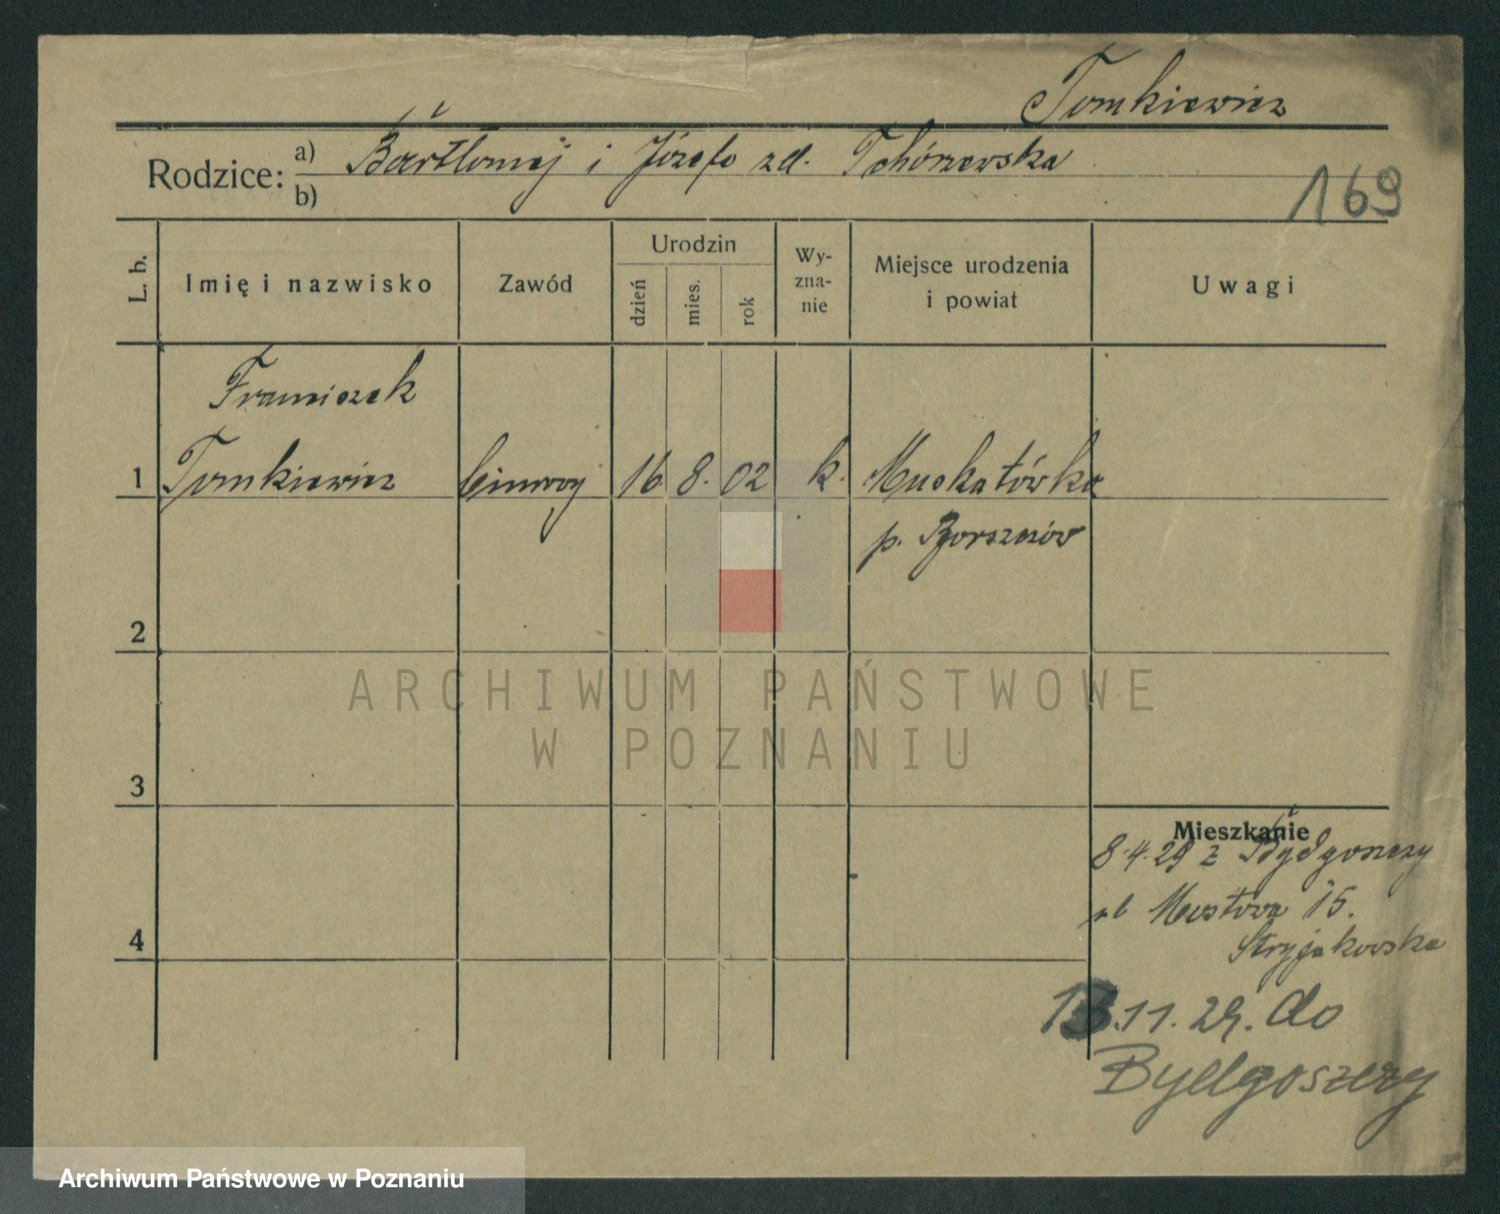 Tomkiewicz
Rodzice: a) Bartłomiej i Józefa zd. Tchórzewska
b)
169
L. b.
Imię i nazwisko
Zawód
Urodzin
dzień
mies.
rok
Wy-
zna-
nie
Miejsce urodzenia
i powiat
Uwagi
Franciszek
1 Tomkiewicz 16 8. 02 k. Muskatówka
p. Borszczów
2
ARCHIWUM PAŃSTWOWE
W POZNANIU
3
Mieszkanie
8.4.29 z Bydgoszczy
ul Mostowa 15.
Stryjakowska
4
13.11.29. do
Bydgoszczy
Archiwum Państwowe w Poznaniu